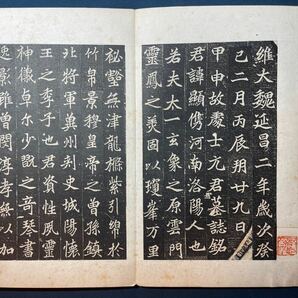 維大魏延昌二年歲次癸
巳二月丙辰朔廿九日
甲申故處士元君墓誌銘
君諱顯儁河南洛陽人也
若夫太一玄象之原雲門
靈鳳之美固以瓊峯万里
祕壑無津龍紫引綿於
竹帛景穆皇帝之曾孫鎮
北將軍冀州刺史城陽懷
王之季子也君資性夙靈
神儀卓尔少翫之奇琴書
逸影雖曾閔淳孝無以加